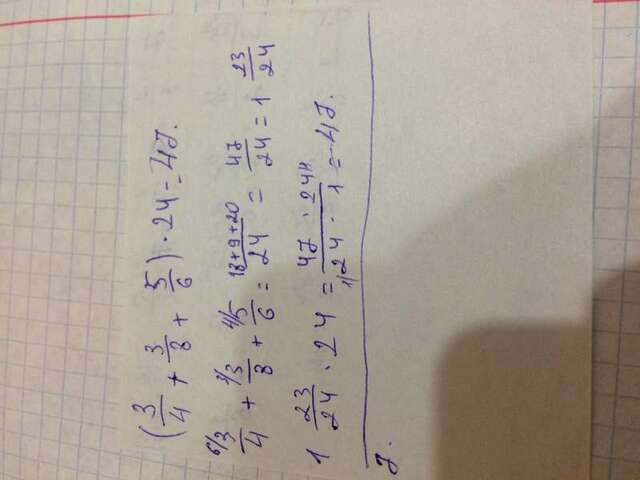 (3/4 + 3/8 + 5/6) · 24 = 47.
6/ 3/4 + 3/ 3/8 + 4/ 5/6 = 18+9+20/24 = 47/24 = 1 23/24
1 23/24 · 24 = 47 · 24/1 / 1/24 · 1 = 47.
7.